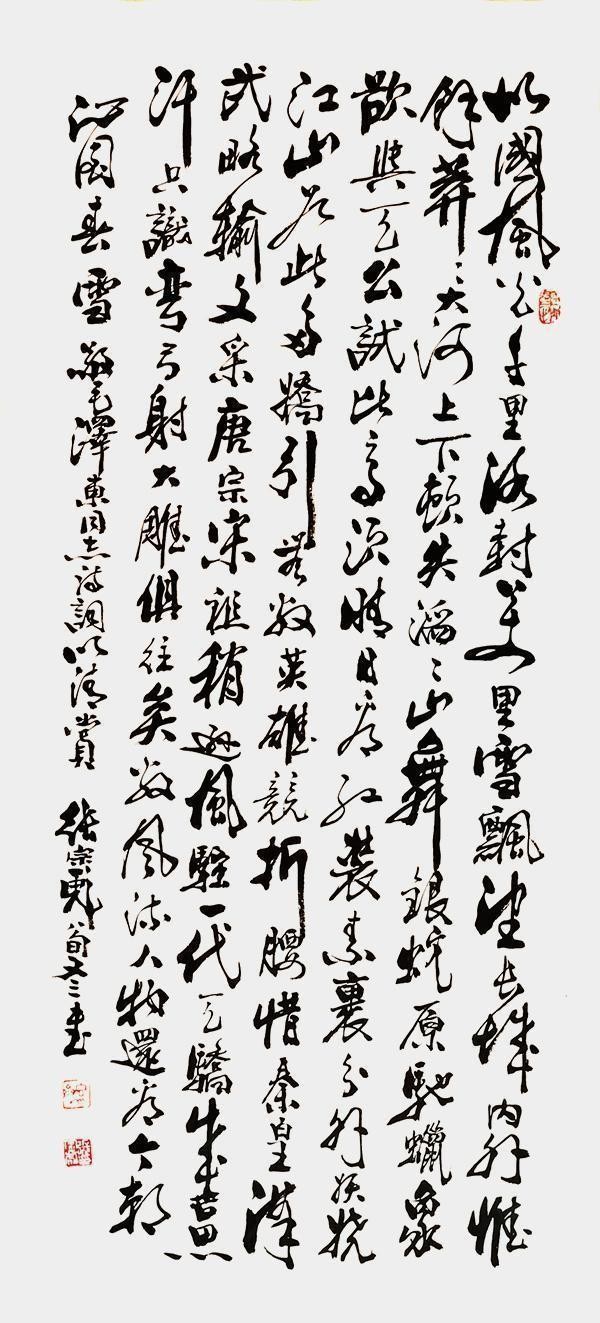 北國風光千里冰封萬里雪飄望長城內外惟
餘莽〻大河上下頓失滔〻山舞銀蛇原馳蠟象
欲與天公試比高須晴日看紅裝素裹分外妖嬈
江山如此多嬌引無數英雄競折腰惜秦皇漢
武略輸文采唐宗宋祖稍遜風騷一代天驕成吉思
汗只識彎弓射大雕俱往矣數風流人物還看今朝
沁園春雪 毛澤東同志詩詞以清賞 張宗 旬又三書